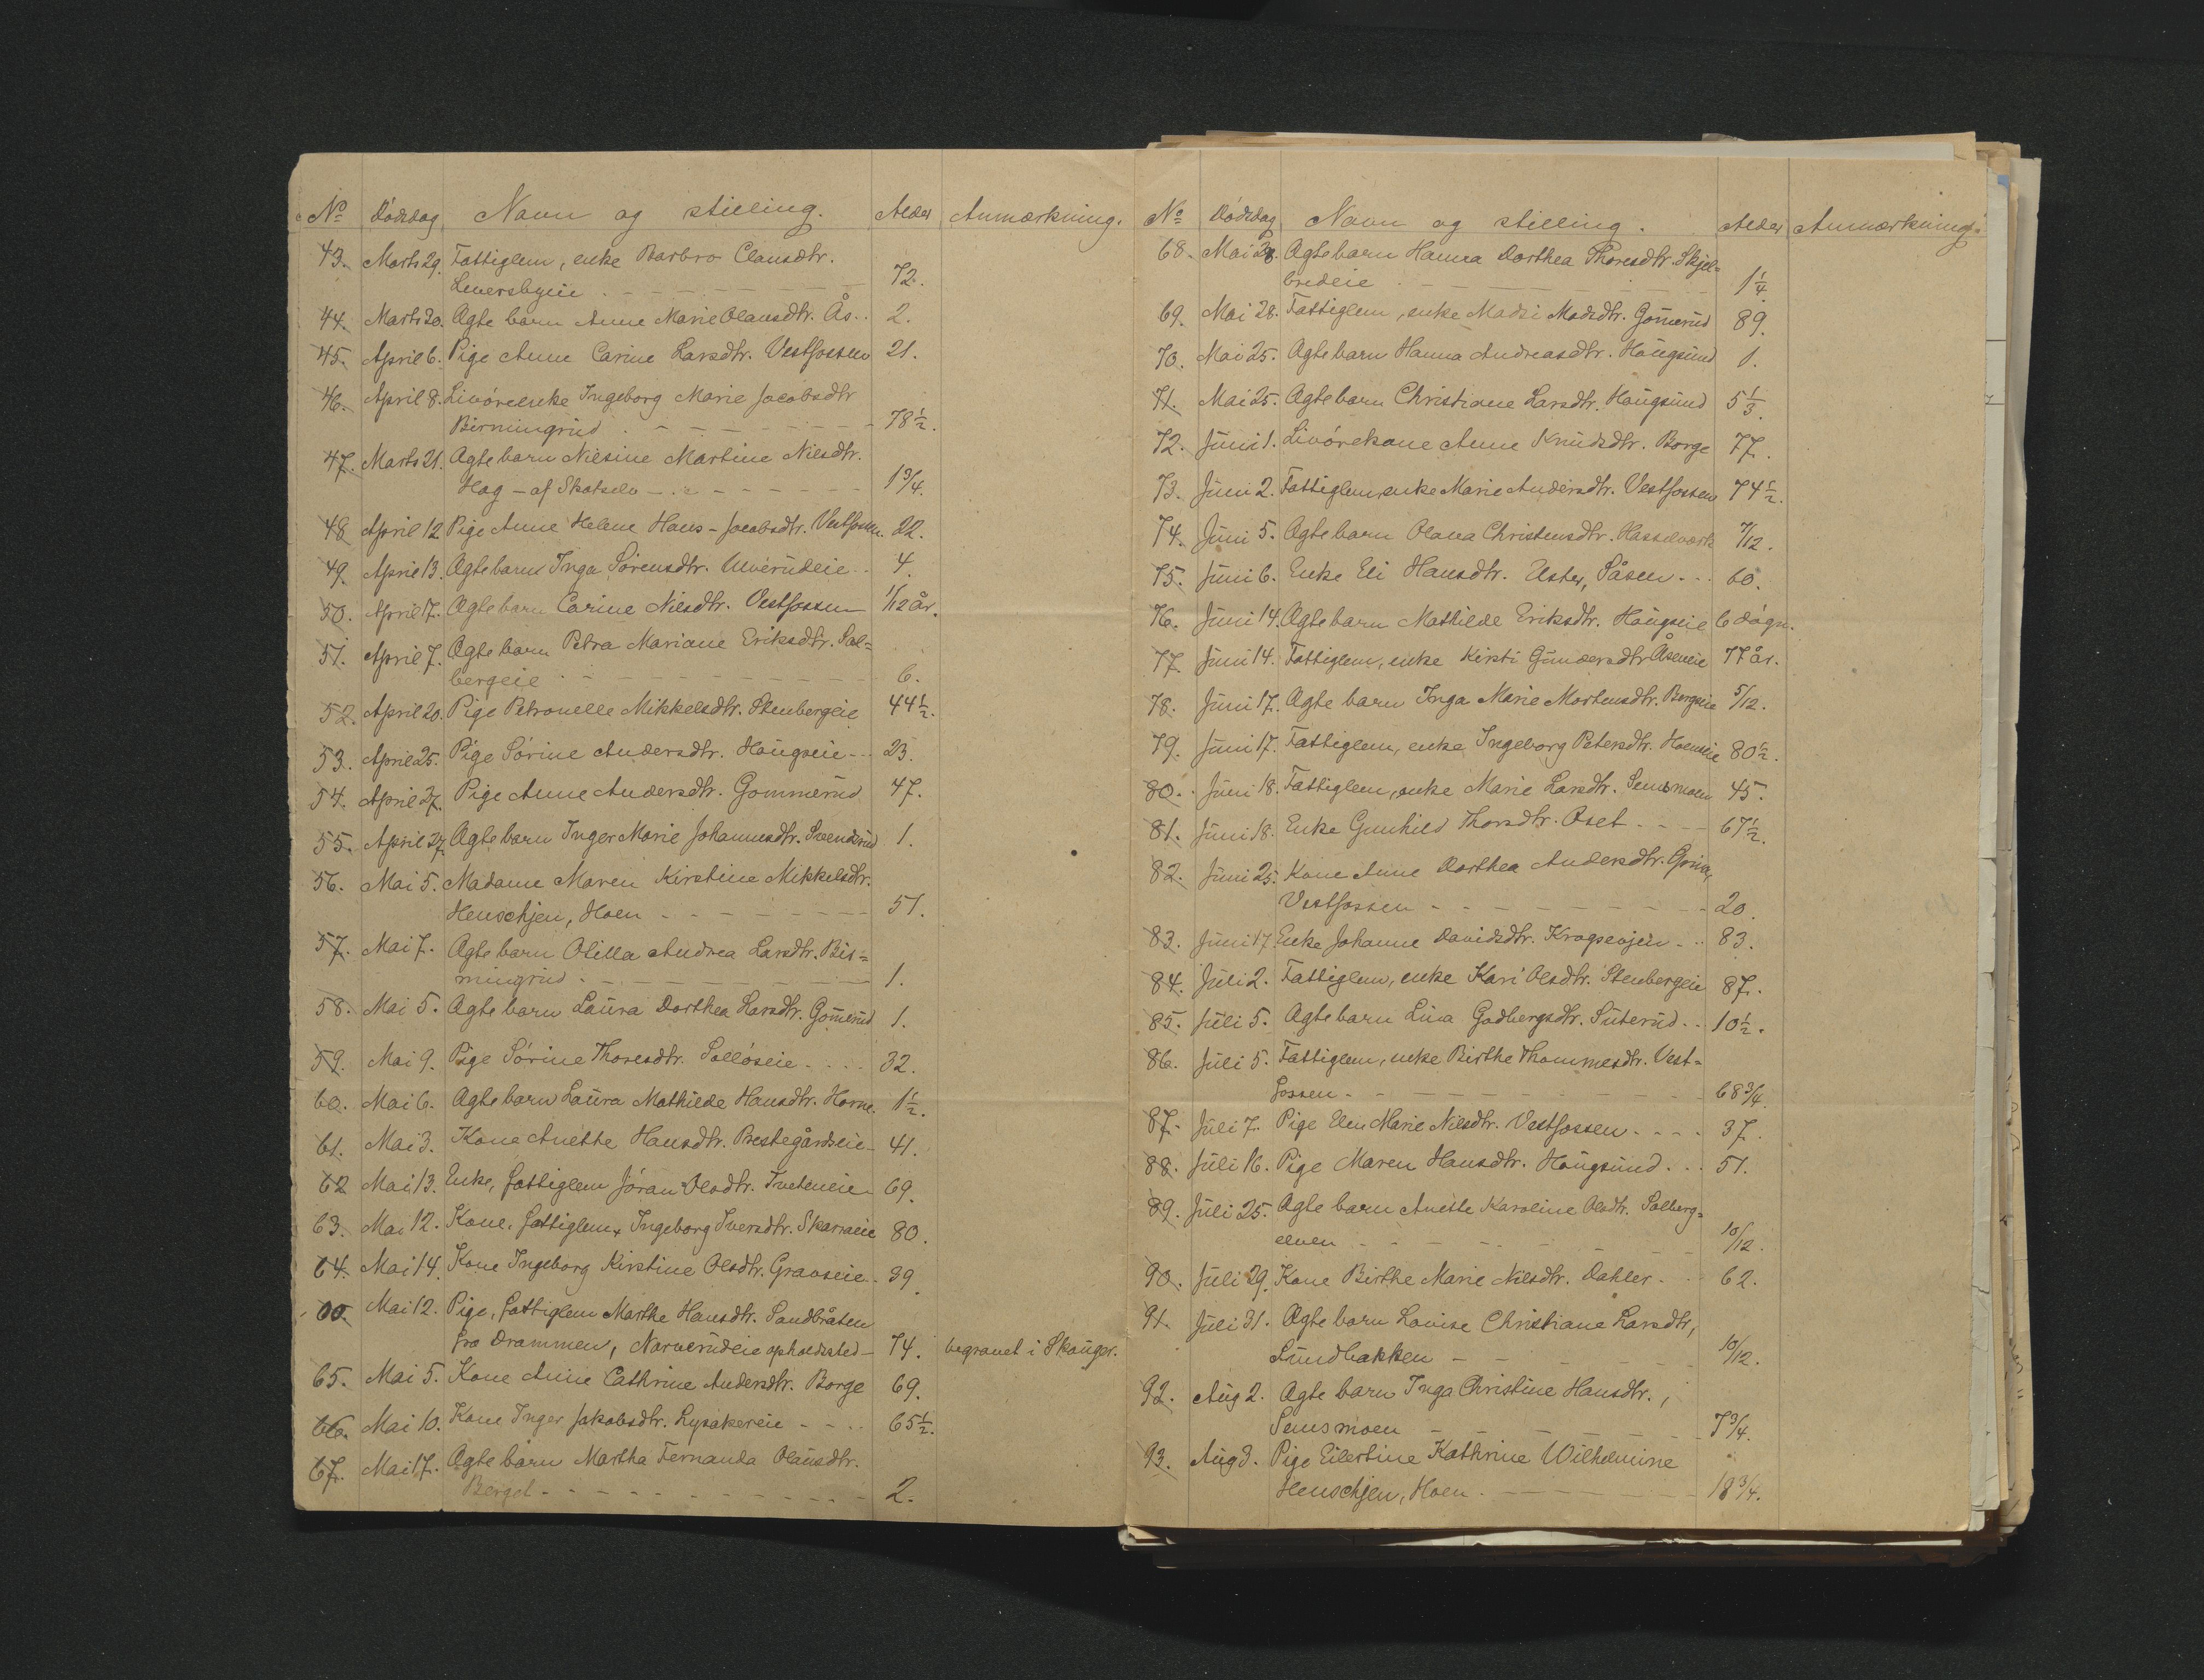 No Dödsdag. Navn og stilling. Alder Anmærkning.
43. Marts 29. Fattiglem, enke Barbro Clausdtr.
Leversbyeie 72.
44. Marts 20. Ægte barn Anne Marie Olausdtr. Ås. 2.
45. April 6. Pige Anne Carine Larsdtr. Vestfossen 21.
46. April 8. Livöreenke Ingeborg Marie Jacobsdtr
Birmingrud 78 1/2.
47. Marts 21. Ægte barn Nilsine Martine Nilsdtr.
Hag - af Skotselv 1 3/4.
48 April 12 Pige Anne Helene Hans-Jacobsdtr. Vestfossen. 22.
49. April 13. Ægte barn Inga Sörensdtr. Ulverudeie 4.
50. April 17. Ægte barn Carine Nilsdtr. Vestfossen 1/12 år.
51. April 7. Ægte barn Petra Mariane Eriksdtr. Sol=
bergeie 6.
52. April 20. Pige Petronelle Mikkelsdtr. Stenbergeie 44 1/2.
53. April 25. Pige Sörine Andersdtr. Haugseie 23.
54. April 27. Pige Anne Andersdtr. Gommerud 47.
55. April 27. Ægte barn Inger Marie Johannesdtr. Svenderud 1.
56. Mai 5. Madame Maren Kirstine Mikkelsdtr.
Henschjen, Hoen 51.
57. Mai 7. Ægte barn Olilla Andrea Larsdtr. Bir=
mingrud 1.
58. Mai 5. Ægte barn Laura Dorthea Larsdtr. Gom̄erud 1.
59. Mai 9. Pige Sörine Thoresdtr. Solløseie 32.
60. Mai 6. Ægte barn Laura Mathilde Hansdtr. Horne. 1 1/2.
61. Mai 3. Kone Anette Hansdtr. Prestegårdseie 41.
62 Mai 13. Enke, fattiglem Jöran Olsdtr. Tveteneie 69.
63. Mai 12. Kone, fattiglem Ingeborg Iversdtr. Skarraeie 80.
64. Mai 14. Kone Ingeborg Kirstine Olsdtr. Gravseie 39.
00. Mai 12. Pige, fattiglem Marthe Hansdtr. Sandbråten
fra Drammen, Narverudeie opholdsted 74. begravet i Skauger.
65. Mai 5. Kone Anne Cathrine Andersdtr. Borge 69.
66. Mai 10. Kone Inger Jakobsdtr. Lysakereie 65 1/2.
67. Mai 17. Ægte barn Martha Fernanda Olausdtr.
Berget 2.
No Dödsdag Navn og stilling. Alder Anmærkning.
68. Mai 28. Ægte barn Hanna Dorthea Thoresdtr. Skjel=
bredeie 1 1/4.
69. Mai 28. Fattiglem, enke Madsi Madsdtr. Gom̄erud 89.
70. Mai 25. Ægte barn Hanna Andreasdtr. Haugsund 1.
71. Mai 25. Ægte barn Christiane Larsdtr. Haugsund 5 1/3.
72. Juni 1. Livörekone Anne Knudsdtr. Borge 77.
73. Juni 2. Fattiglem, enke Marie Andersdtr. Vestfossen 74 1/2.
74. Juni 5. Ægte barn Olava Christensdtr. Hasselværk 7/12.
75. Juni 6. Enke Eli Hansdtr. Ulster, Såsen 60.
76. Juni 14. Ægte barn Mathilde Eriksdtr. Haugseie 6 dögn.
77. Juni 14. Fattiglem, enke Kirsti Gundersdtr Åseneie 77 år.
78. Juni 17. Ægte barn Inga Marie Mortensdtr. Bergseie 5/12.
79. Juni 17. Fattiglem, enke Ingeborg Petersdtr. Hoenseie 80 1/2.
80. Juni 18. Fattiglem, enke Marie Larsdtr. Semsmoen 45.
81. Juni 18. Enke Gunhild Thorsdtr. Öset 67 1/2.
82. Juni 25. Kone Anne Dorthea Andersdtr.
Vestfossen 20.
83. Juni 17. Enke Johanne Davidsdtr. Kragsevjen 83.
84. Juli 2. Fattiglem, enke Kari Olsdtr. Stenbergeie 87.
85. Juli 5. Ægte barn Lina Gudbergsdtr. Suterud 10 1/2.
86. Juli 5. Fattiglem, enke Birthe Thommesdtr. Vest=
fossen 68 3/4.
87. Juli 7. Pige Elen Marie Nilsdtr. Vestfossen 37.
88. Juli 16. Pige Maren Hansdtr. Haugsund 51.
89. Juli 25. Ægte barn Anette Karoline Olsdtr. Solberg=
elven 10/12.
90. Juli 29. Kone Birthe Marie Nilsdtr. Dahler 62.
91. Juli 31. Ægte barn Lovise Christiane Larsdtr,
Lundbakken 10/12.
92. Aug 2. Ægte barn Inga Christine Hansdtr.,
Semsmoen 7 3/4.
93. Aug 3. Pige Eilertine Kathrine Wilhelmine
Henschjen, Hoen. 18 3/4.